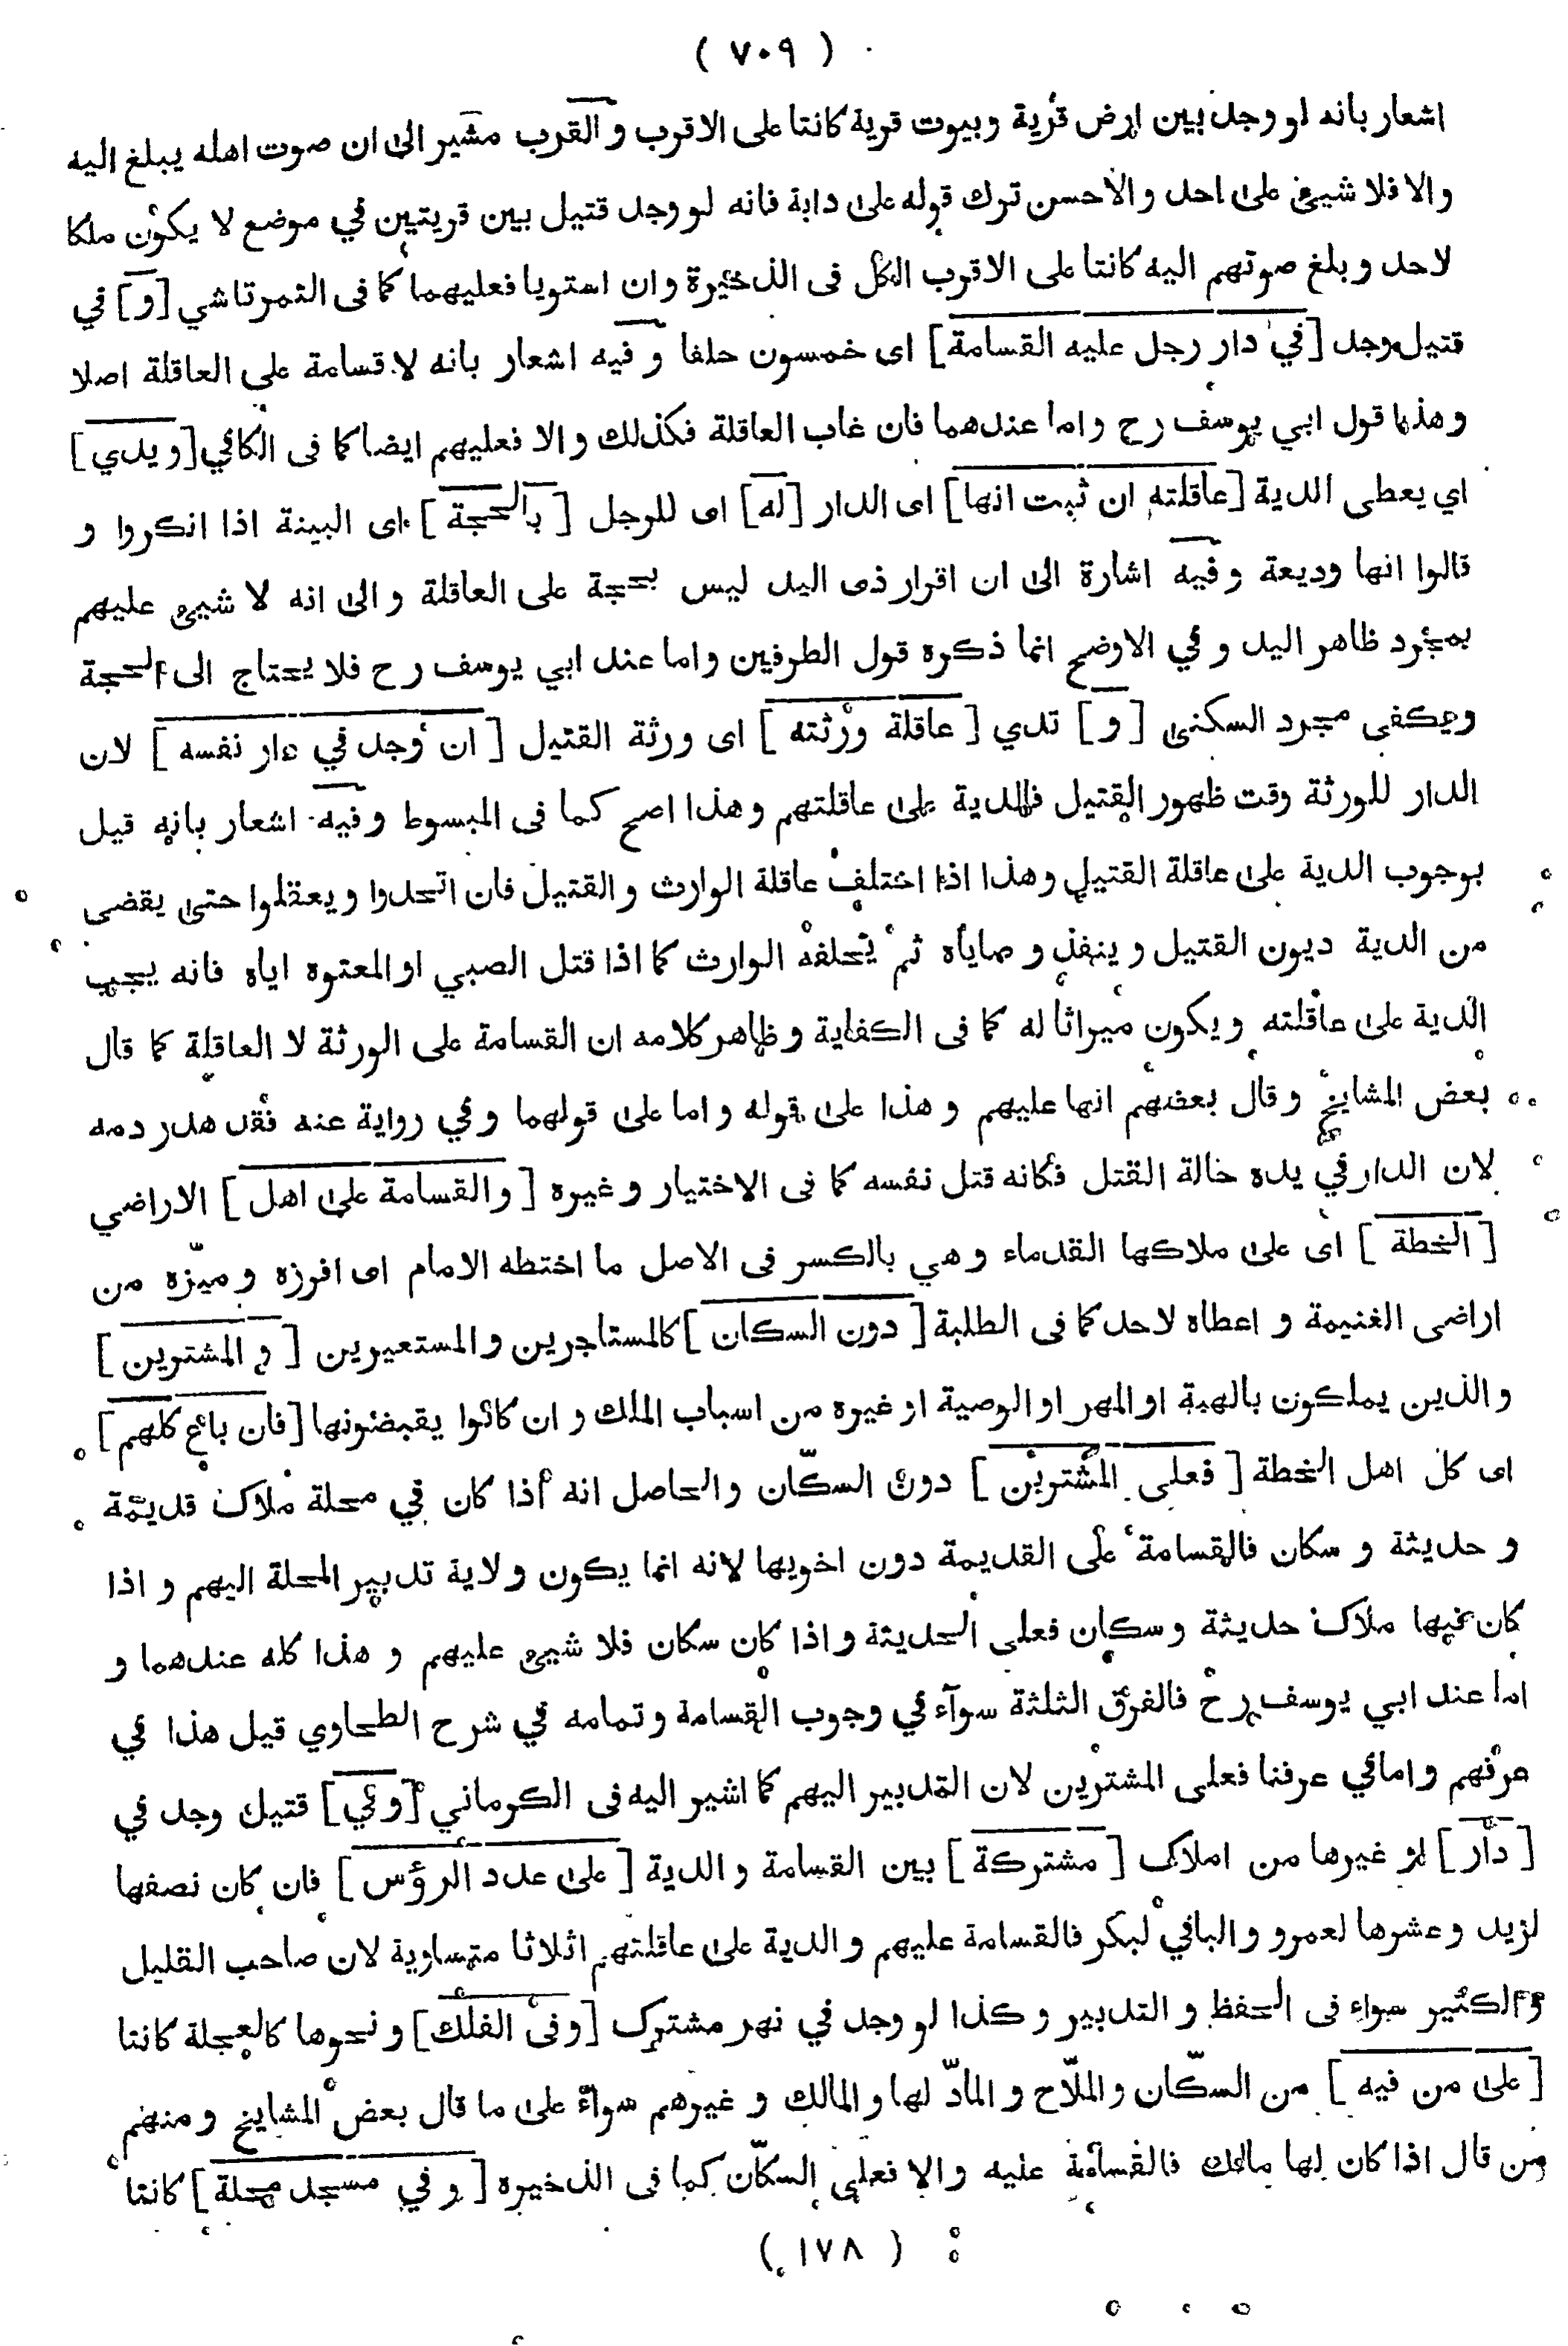 ( ٧٠٩ )
اشعار بانه لو وجد بين ارض قرية وبيوت قرية كانتا على الاقرب و القرب مشير الى ان صوت اهله يبلغ اليه
والا فلا شيئ على احد والاحسن ترك قوله على دابة فانه لو وجد قتيل بين قريتين في موضع لا يكون ملكا
لاحد و بلغ صوتهم اليه كانتا على الاقرب الكل فى الذخيرة وان استويا فعليهما كما فى التمرتاشي [و] في
قتيل وجد [في دار رجل عليه القسامة] اى خمسون حلفا و فيه اشعار بانه لا قسامة على العاقلة اصلا
وهذا قول ابي يوسف رح واما عندهما فان غاب العاقلة فكذلك والا فعليهم ايضا كما فى الكافي [ويدي]
اي يعطى الدية [عاقلته ان ثبت انها] اى الدار [له] اى للرجل [بالحجة] اى البينة اذا انكروا و
قالوا انها وديعة و فيه اشارة الى ان اقرار ذى اليد ليس بحجة على العاقلة و الى انه لا شيئ عليهم
بمجرد ظاهر اليد و في الاوضح انما ذكره قول الطرفين واما عند ابي يوسف رح فلا يحتاج الى الحجة
ويكفى مجرد السكنى [و] تدي [عاقلة ورثته] اى ورثة القتيل [ان وجد في دار نفسه] لان
الدار للورثة وقت ظهور القتيل فالدية على عاقلتهم وهذا اصح كما فى المبسوط وفيه اشعار بانه قيل
بوجوب الدية على عاقلة القتيل وهذا اذا اختلف عاقلة الوارث و القتيل فان اتحدوا ويعقلوا حتى يقضى
من الدية ديون القتيل و ينفذ وصاياه ثم يخلفه الوارث كما اذا قتل الصبي او المعتوه اياه فانه يجب
الدية على عاقلته ويكون ميراثا له كما فى الكفاية وظاهر كلامه ان القسامة على الورثة لا العاقلة كما قال
بعض المشايخ وقال بعضهم انها عليهم و هذا على قوله و اما على قولهما وفي رواية عنه فقد هدر دمه
لان الدار في يده حالة القتل فكانه قتل نفسه كما فى الاختيار و غيره [والقسامة على اهل] الاراضي
[الخطة] اى على ملاكها القدماء و هي بالكسر فى الاصل ما اختطه الامام اى افرزه و ميّزه من
اراضى الغنيمة و اعطاه لاحد كما فى الطلبة [دون السكان] كالمستاجرين والمستعيرين [و المشترين]
والذين يملكون بالهبة او المهر او الوصية او غيره من اسباب الملك و ان كانوا يقبضونها [فان باع كلهم]
اى كل اهل الخطة [فعلى المشترين] دون السكّان والحاصل انه اذا كان في محلة ملاك قديمة
و حديثة و سكان فالقسامة على القديمة دون اخويها لانه انما يكون ولاية تدبير المحلة اليهم و اذا
كان فيها ملاك حديثة وسكان فعلى الحديثة واذا كان سكان فلا شيئ عليهم و هذا كله عندهما و
اما عند ابي يوسف رح فالفرق الثلثة سوآء في وجوب القسامة وتمامه في شرح الطحاوي قيل هذا في
عرفهم وامافي عرفنا فعلى المشترين لان التدبير اليهم كما اشير اليه فى الكرماني [وفي] قتيل وجد في
[دار] او غيرها من املاك [مشتركة] بين القسامة والدية [على عدد الرؤس] فان كان نصفها
لزيد وعشرها لعمرو والباقي لبكر فالقسامة عليهم والدية على عاقلتهم اثلاثا متساوية لان صاحب القليل
والكثير سواء فى الحفظ و التدبير و كذا لو وجد في نهر مشترك [وفى الفلك] و نحوها كالعجلة كانتا
[على من فيه] من السكّان والملّاح و المادّ لها و المالك و غيرهم سواء على ما قال بعض المشايخ ومنهم
من قال اذا كان لها مالك فالقسامة عليه والا فعلى السكّان كما فى الذخيره [و في مسجد محلة] كانتا
( ١٧٨ )